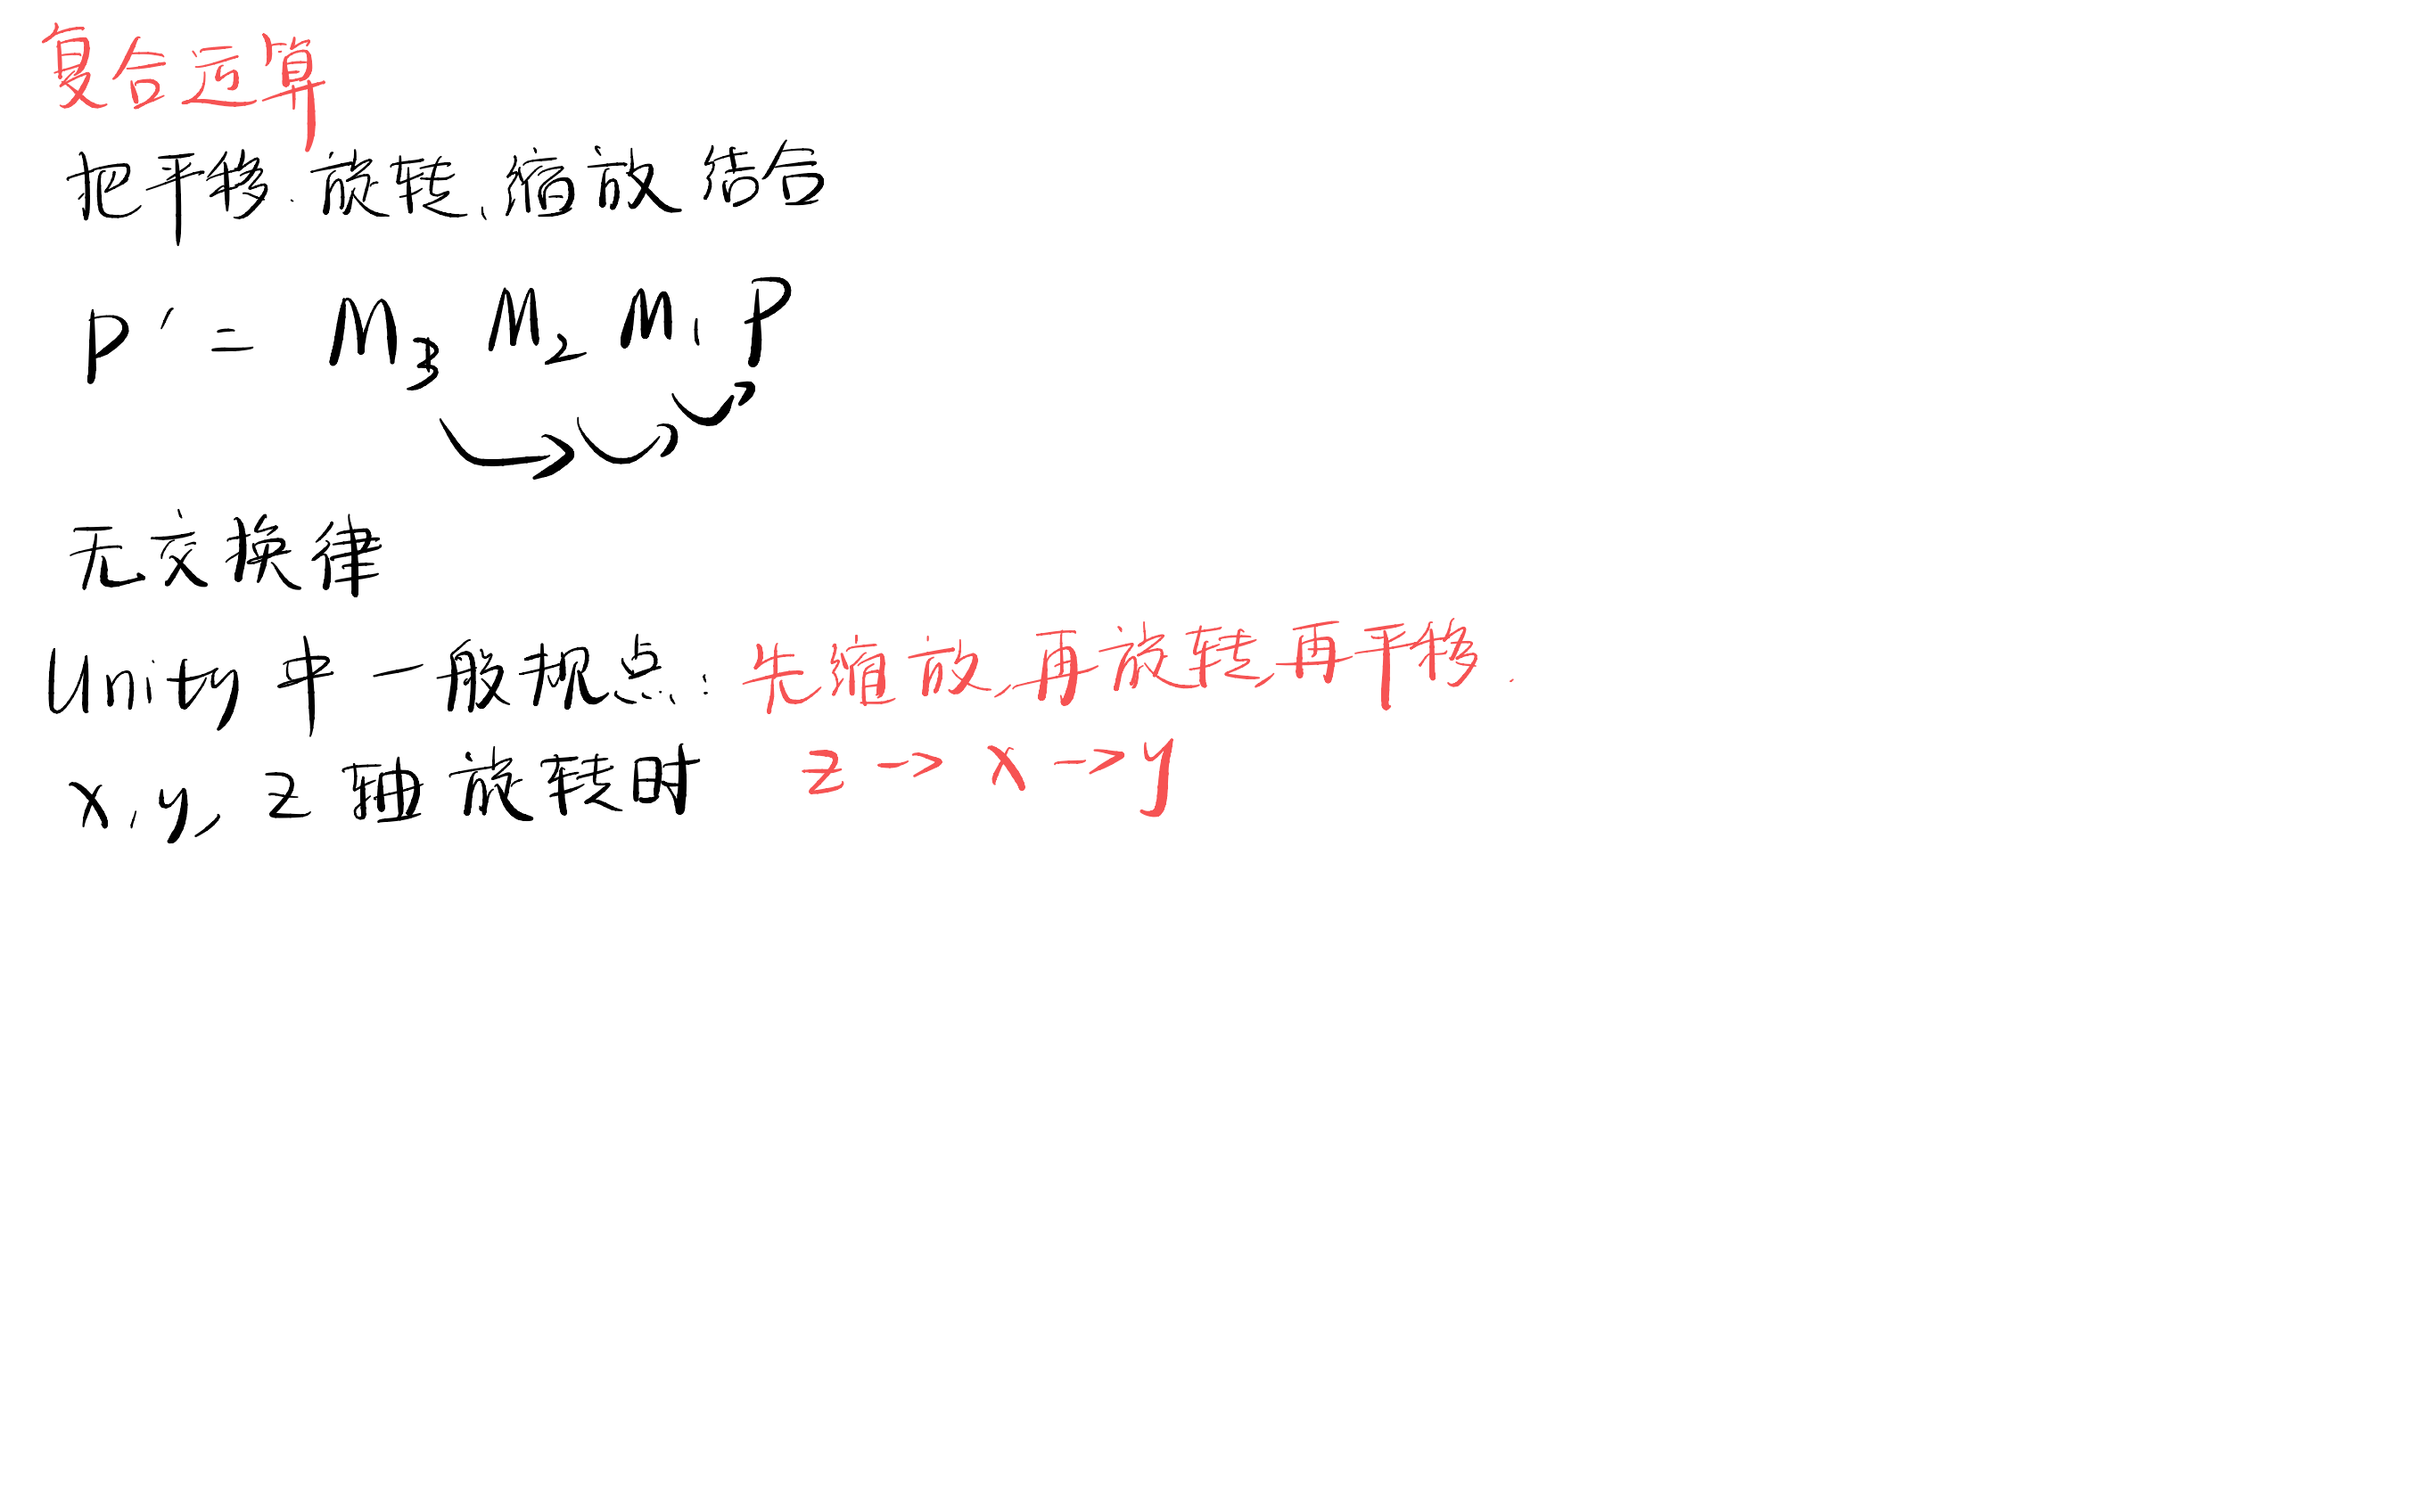 复合运算
把平移、旋转、缩放结合
P' = M₃ M₂ M₁ P
无交换律
Unity 中一般观点: 先缩放,再旋转,再平移.
x, y, z 轴旋转时 z → x → y